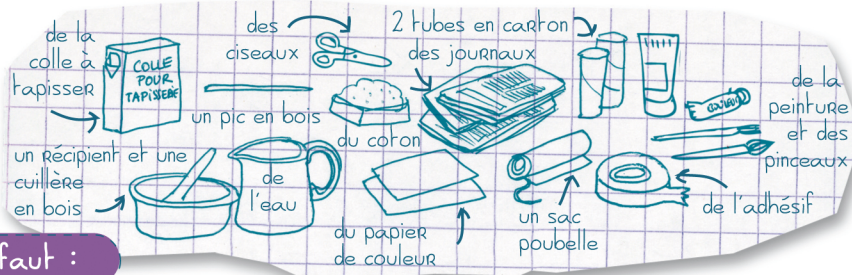 de la
colle à
tapisser
COLLE
POUR
TAPISSERIE
des
ciseaux
2 tubes en carton
des journaux
un pic en bois
du coton
de la
peinture
et des
pinceaux
COULEUR
un récipient et une
cuillère
en bois
de
l'eau
du papier
de couleur
un sac
poubelle
de l'adhésif
faut :